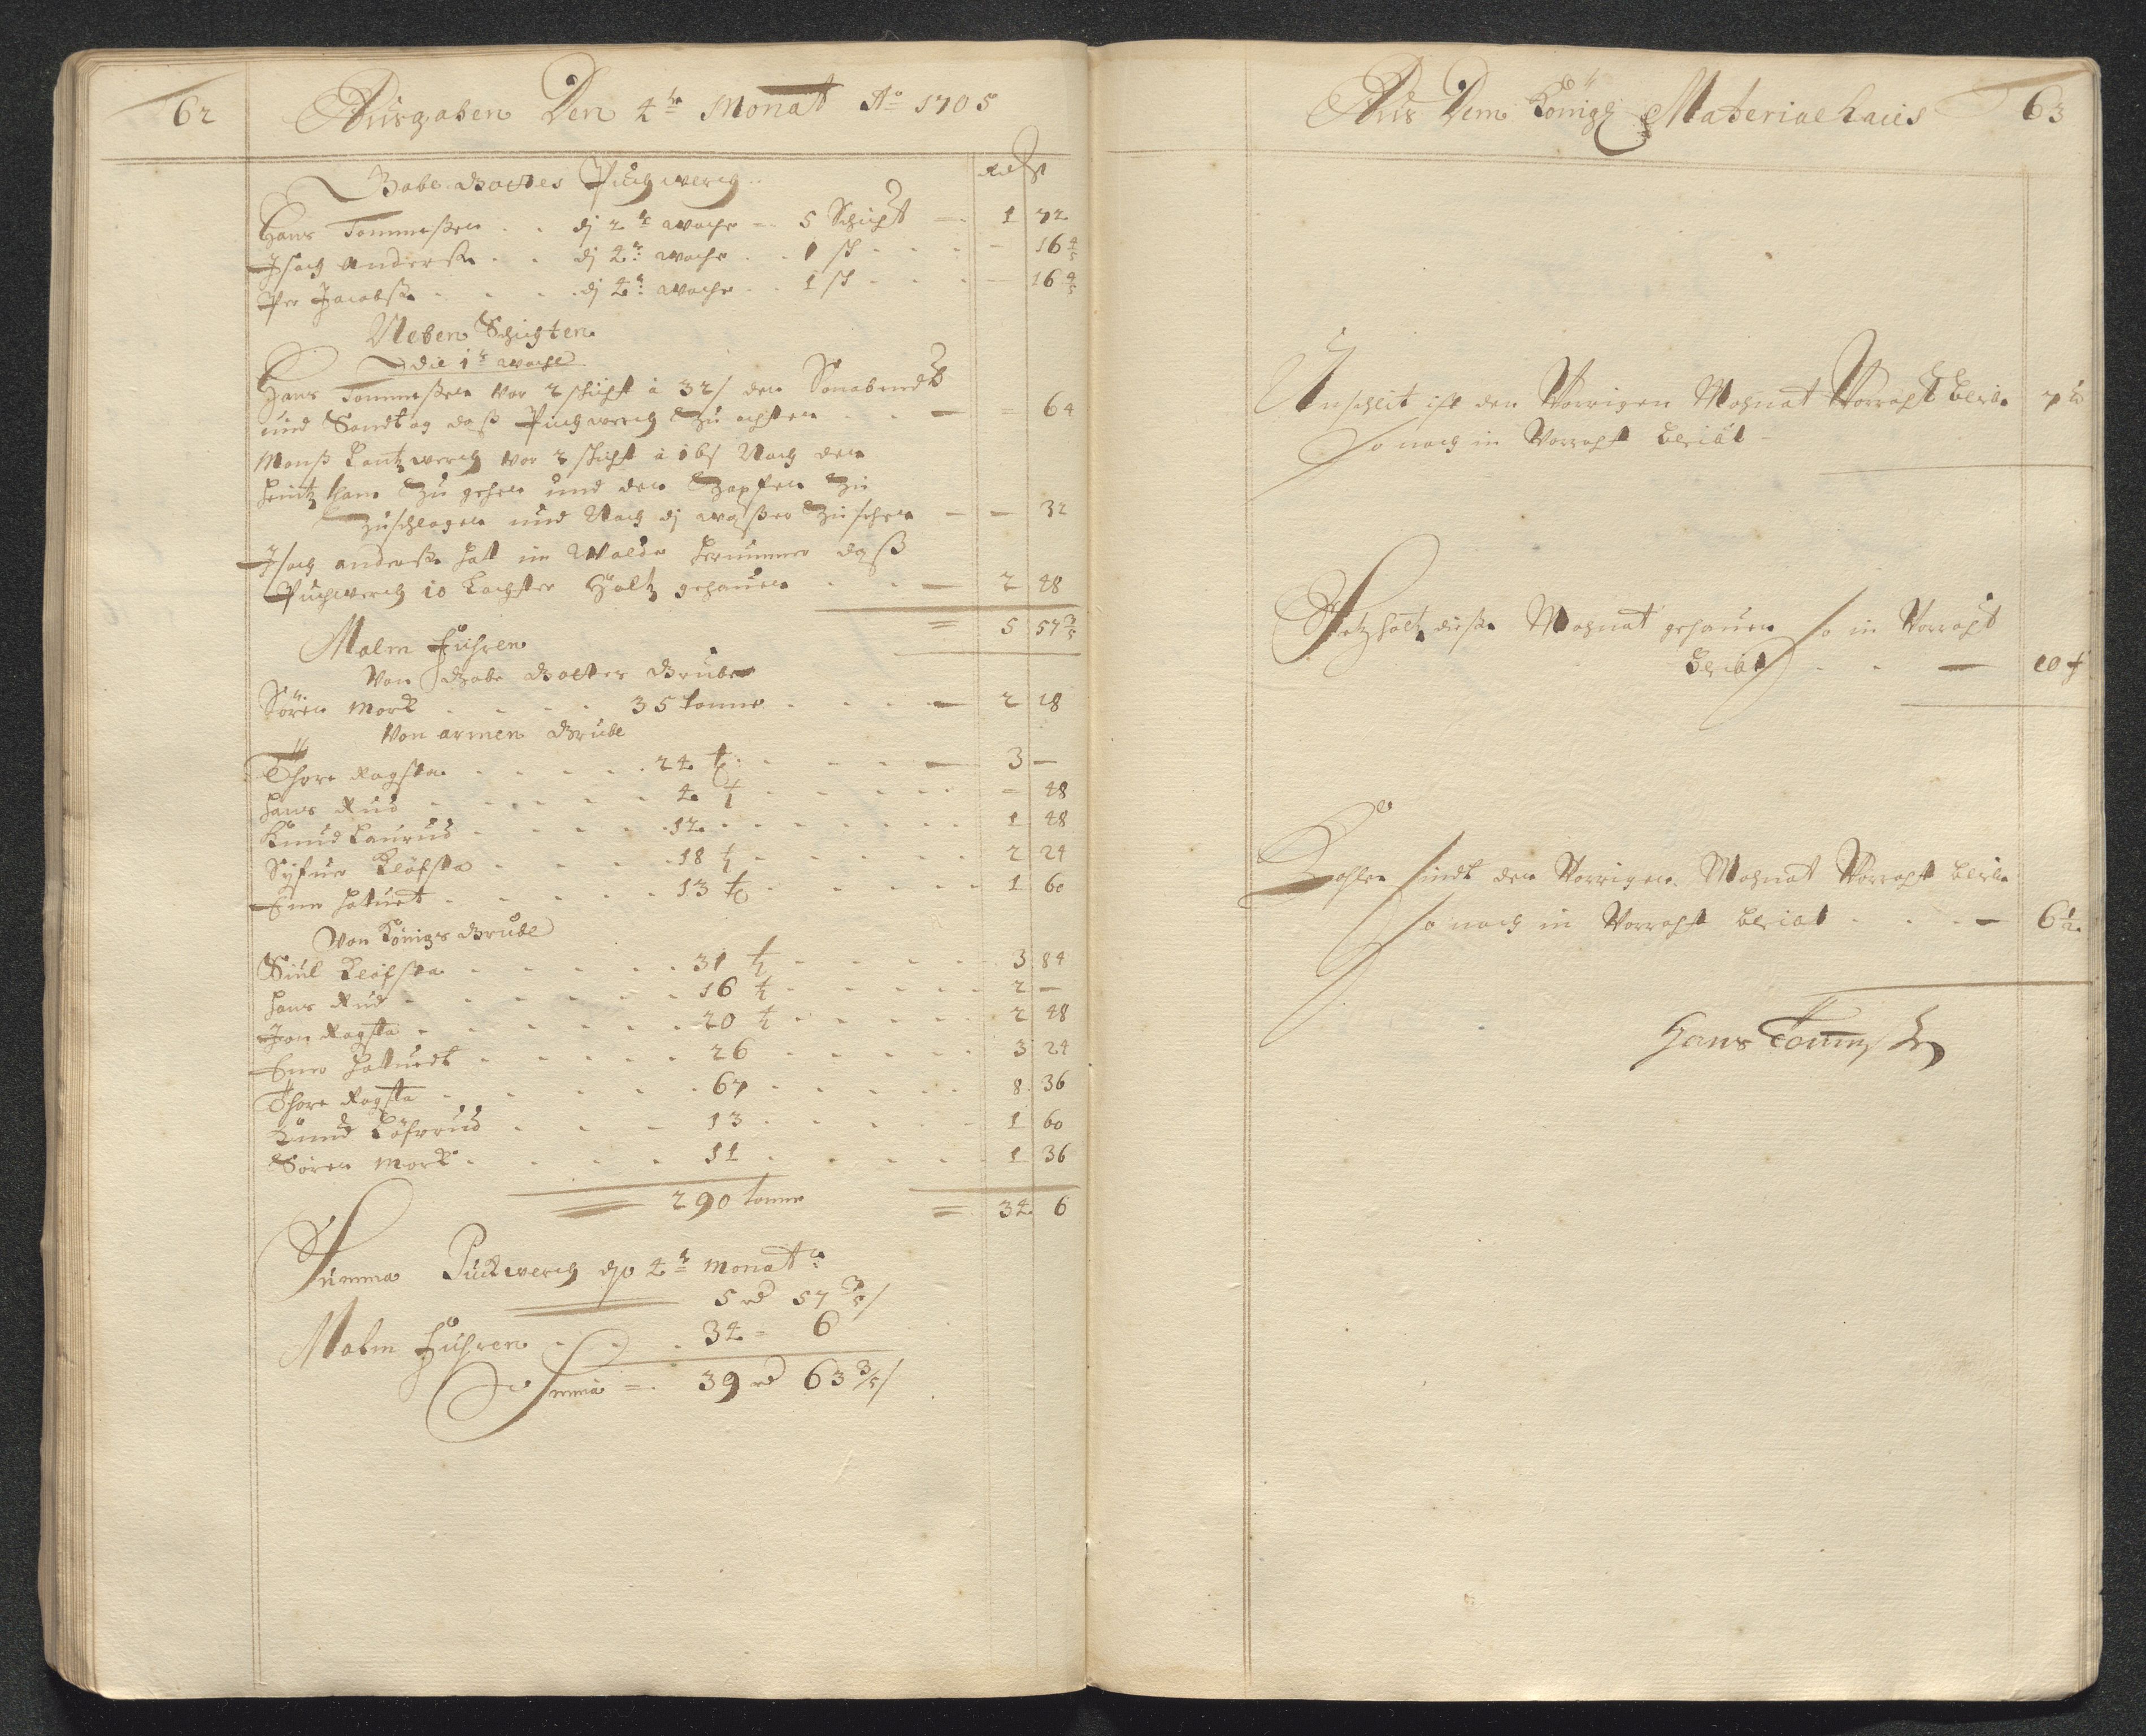 62
Ausgaben Den 4te Monat Ao 1705
Gabe Gottes Puchwerch
rd ß
Hans Tommeßen . . dj 2te woche - 5 Schicht - 1 72
Isach Anderß . . dj 4te woche . . 1 sch - - - 16 4/5
Per Jacobß . . . dj 4te woche . . 1 sch - - - 16 4/5
Neben Schichten
die 1te woche
Hans Tommeßen vor 2 schicht à 32 ß den Sonabendt
und Sondtag daß Puchwerch zu achten - - = 64
Monß Lantzwerch vor 2 schicht à 16 ß Nach den
zu gehen und den Zapfen zu
zuschlagen und Nach dj waßer zu sehen - - 32
Isach anderß hatt im Walde herummer daß
Puchwerch 10 Lachter Holtz gehauen - - 2 48
= 5 57 3/5
Malm Führen
Von Gabe Gottes Grube
Sören Mork - - - 35 tonne - - - 2 18
Von armen Grube
Thore Ragsta - - - 24 t: - - - 3 -
Hans Rud - - - 4 - - - = 48
Knud Laurud - - - 12 - - - 1 48
Syfuer Klöfsta - - - 18 - - - 2 24
- - - 13 t - - - 1 60
Von Königs Grube
Siul Klöfsta - - - 31 - - - 3 84
Hans Rud - - - 16 - - - 2 -
Jon Ragsta - - - 20 - - - 2 48
- - - 26 - - - 3 24
Thore Ragsta - - - 67 - - - 8 36
Knud Löfrud - - - 13 - - - 1 60
Sören Mork - - - 11 - - - 1 36
290 tonne = 34 6
Summa Puckwerch dho 4te monat
5 rd 57 3/5 ß
Malm Führen - - 34 - 6
Summa = 39 rd 63 3/5 ß
Aus Dem Königl Materialhaus
63
Unschlit ist den Vorrigen Mohnat Vorraht bleibn 7 lb
so noch in Vorraht bleibt -
Setzholtz dieße Mohnat gehauen so in Vorraht
bleibt - - - 10
Kohlen sindt den Vorrigen Mohnat Vorraht bleibn
so noch in Vorraht bleibt - - - 6 1/2
Hans Tommeßen